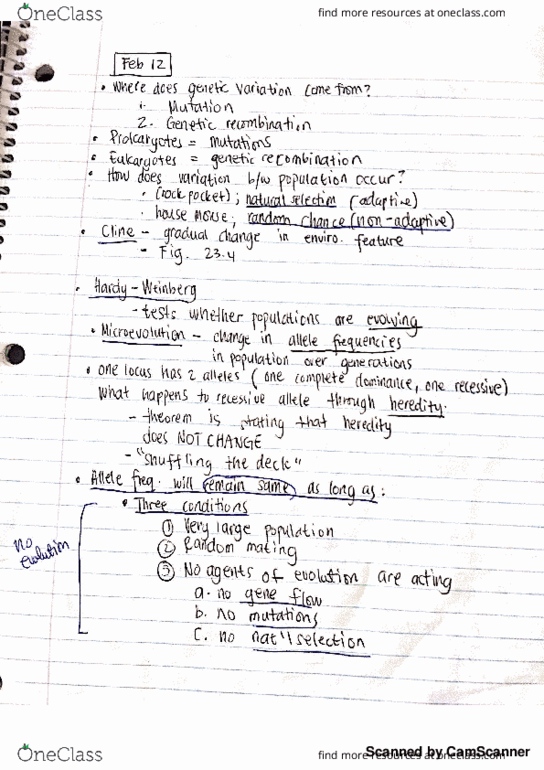 OneClass
find more resources at oneclass.com
Feb 12
• Where does genetic variation come from?
1. Mutation
2. Genetic recombination
• Prokaryotes = mutations
• Eukaryotes = genetic recombination
• How does variation b/w population occur?
• (rock pocket); natural selection (adaptive)
• house mouse; random chance (non-adaptive)
• Cline - gradual change in enviro. feature
- Fig. 23.4
• Hardy-Weinberg
- tests whether populations are evolving
• Microevolution - change in allele frequencies
in population over generations
• one locus has 2 alleles (one complete dominance, one recessive)
What happens to recessive allele through heredity.
- theorem is stating that heredity
does NOT CHANGE
- "shuffling the deck"
• Allele freq. will remain same as long as:
• Three conditions
① Very large population
② Random mating
③ No agents of evolution are acting
a. no gene flow
b. no mutations
c. no nat'l selection
no
evolution
OneClass
find more resources at oneclass.com
Scanned by CamScanner